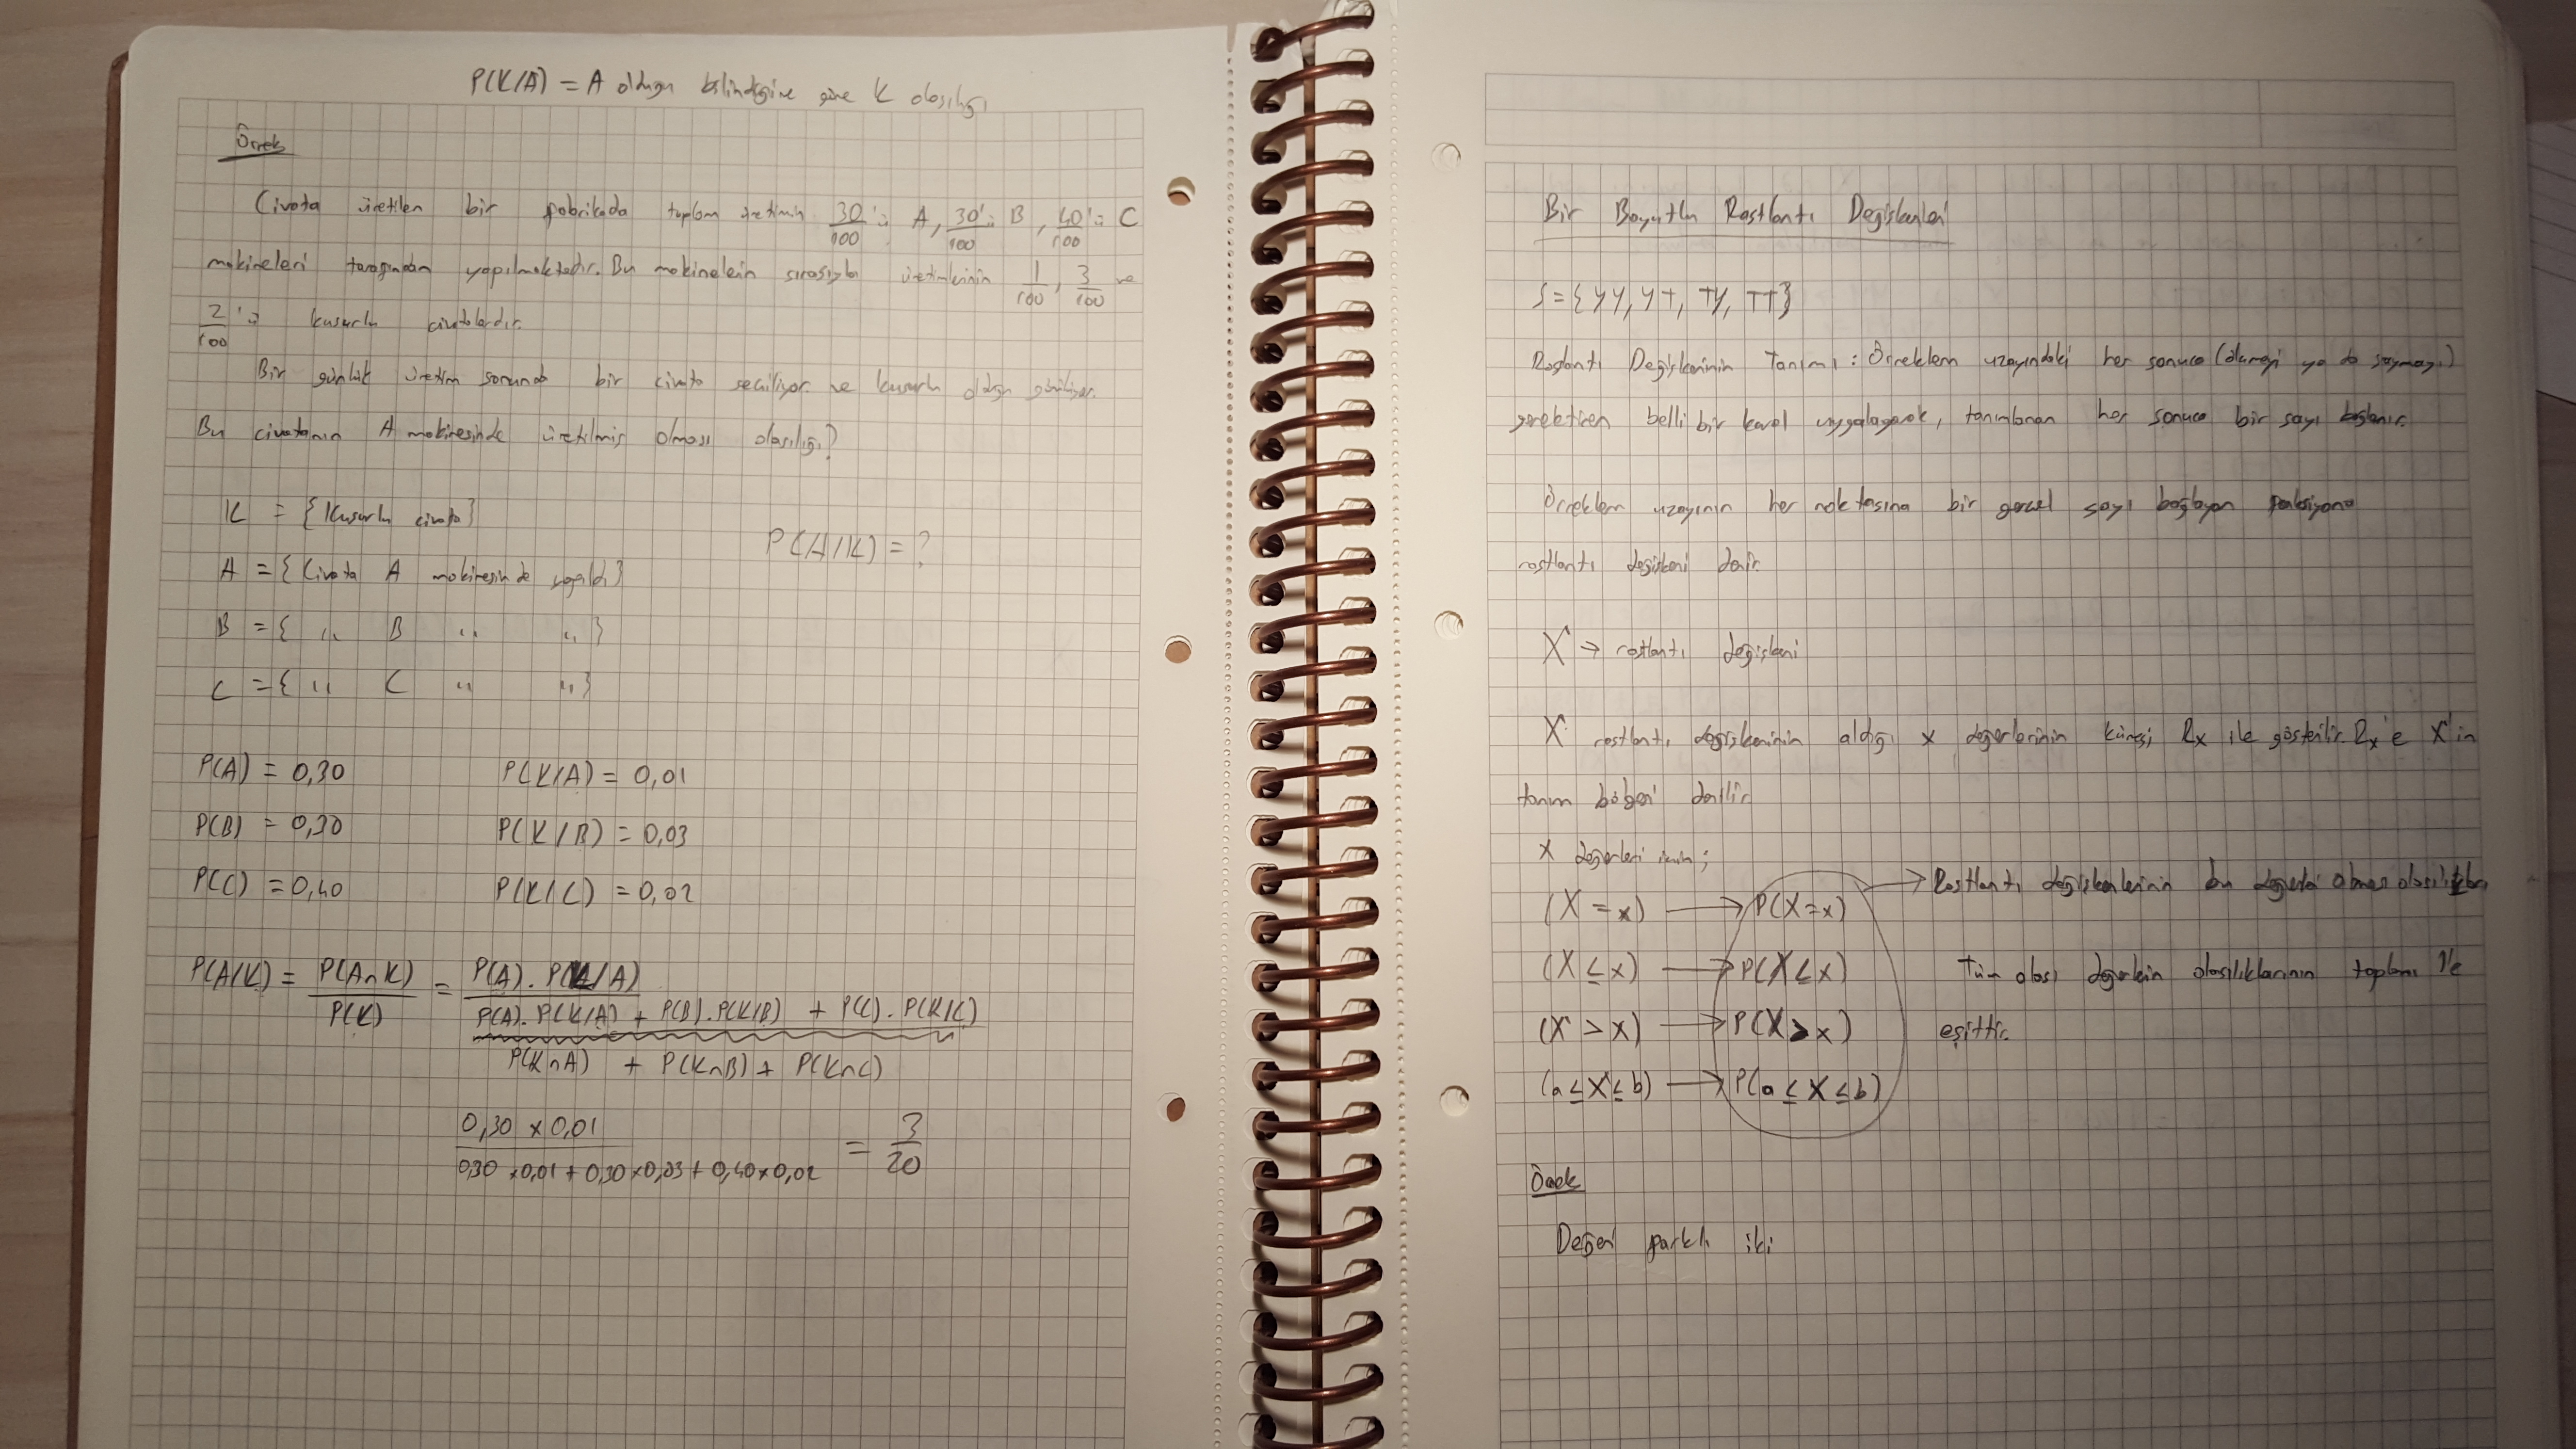 P(K/A) = A olduğu bilindiğine göre K olasılığı
Örnek
Civata üretilen bir fabrikada toplam üretimin 30/100'ü A, 30/100'ü B, 40/100'ü C
makineleri tarafından yapılmaktadır. Bu makinelerin sırasıyla üretimlerinin 1/100, 3/100 ve
2/100'ü kusurlu civatalardır.
Bir günlük üretim sonunda bir civata seçiliyor ve kusurlu olduğu görülüyor.
Bu civatanın A makinesinde üretilmiş olması olasılığı?
K = {Kusurlu civata}
P(A/K) = ?
A = {Civata A makinesinde yapıldı}
B = { " B " " }
C = { " C " " }
P(A) = 0,30 P(K/A) = 0,01
P(B) = 0,30 P(K/B) = 0,03
P(C) = 0,40 P(K/C) = 0,02
P(A/K) = P(A∩K) / P(K) = P(A). P(K/A) / P(A). P(K/A) + P(B). P(K/B) + P(C). P(K/C)
P(K∩A) + P(K∩B) + P(K∩C)
0,30 x 0,01 / 0,30 x 0,01 + 0,30 x 0,03 + 0,40 x 0,02 = 3/20
Bir Boyutlu Rastlantı Değişkenleri
S = {YY, YT, TY, TT}
Rastlantı Değişkeninin Tanımı : Örneklem uzayındaki her sonuca (ölçmeyi ya da saymayı)
gerektiren belli bir kural uygulayarak, tanımlanan her sonuca bir sayı bağlanır.
Örneklem uzayının her noktasına bir gerçel sayı bağlayan fonksiyona
rastlantı değişkeni denir.
X → rastlantı değişkeni
X rastlantı değişkeninin aldığı x değerlerinin kümesi Rx ile gösterilir. Rx'e X'in
tanım bölgesi denilir.
x değerleri için;
(X = x) → P(X = x) → Rastlantı değişkenlerinin bu değerleri alması olasılıkları
(X ≤ x) → P(X ≤ x) Tüm olası değerlerin olasılıklarının toplamı 1'e
(X > x) → P(X > x) eşittir.
(a ≤ X ≤ b) → P(a ≤ X ≤ b)
Örnek
Değeri farklı iki